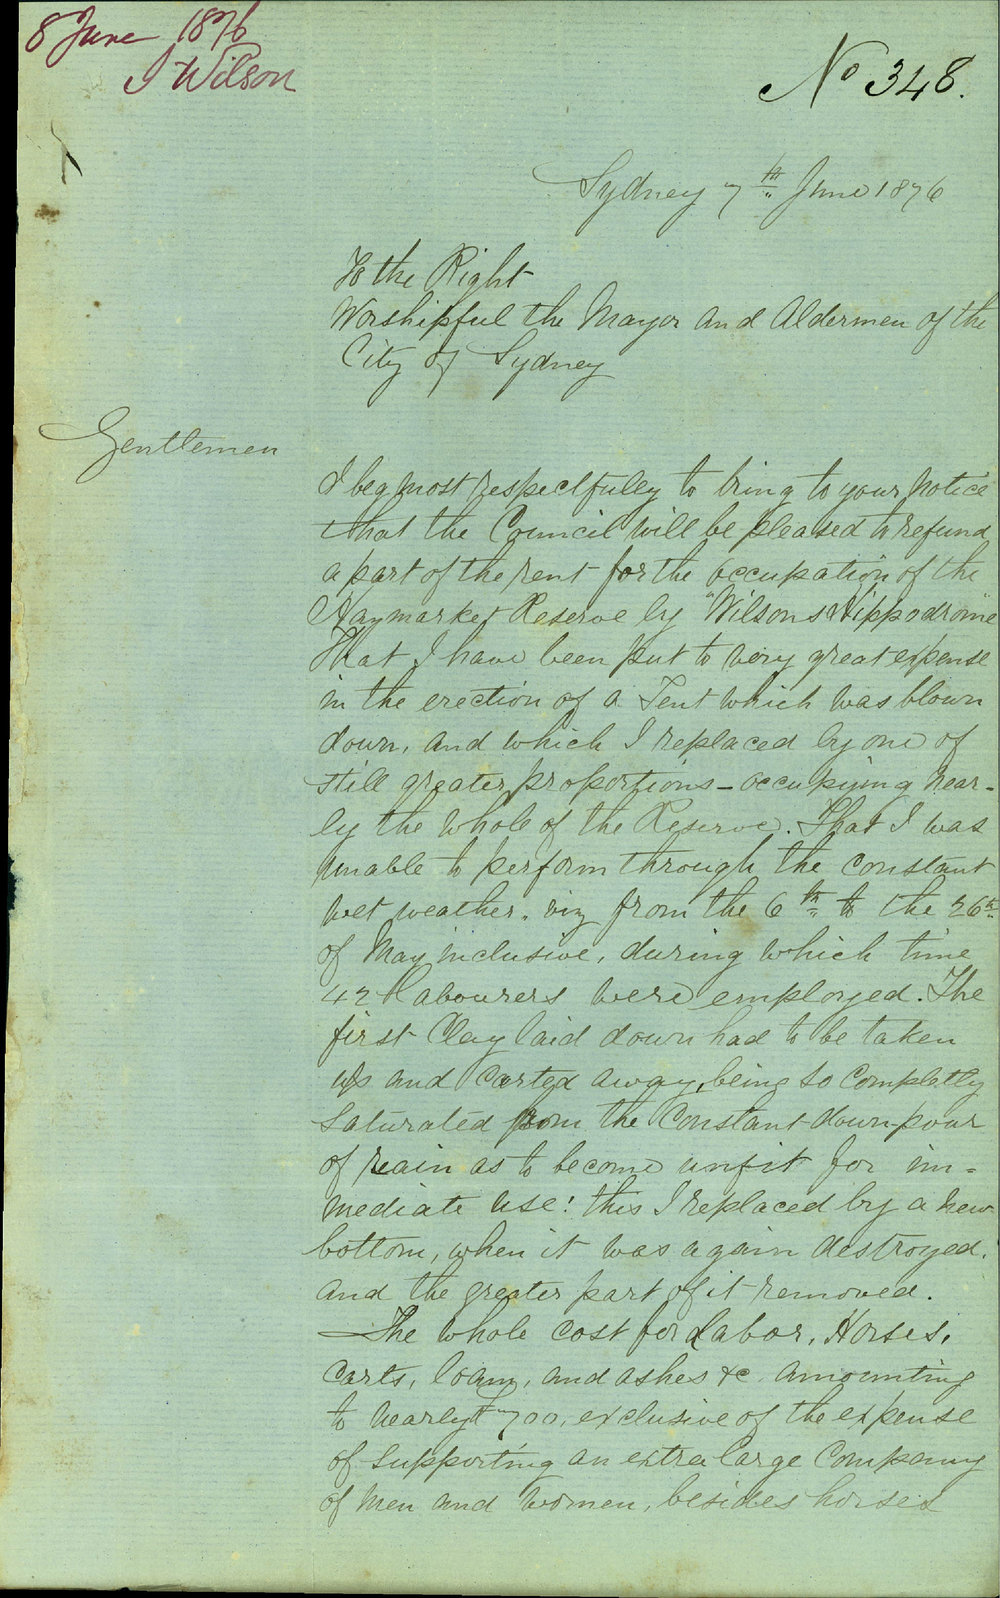 8 June 1876
J Wilson
No 348.
Sydney 7th June 1876
To the Right
Worshipful the Mayor and Aldermen of the
City of Sydney
Gentlemen
I beg most respectfully to bring to your notice
that the Council will be pleased to refund
a part of the rent for the occupation of the
Haymarket Reserve by "Wilsons Hippodrome"
That I have been put to very great expense
in the erection of a Tent which was blown
down, and which I replaced by one of
still greater proportions - occupying near-
ly the whole of the Reserve. That I was
unable to perform through the constant
wet weather. viz from the 6th to the 26th
of May inclusive, during which time
42 labourers were employed. The
first Clay laid down had to be taken
up and carted away, being so completly
saturated from the Constant down-pour
of reain as to become unfit for im-
mediate use: this I replaced by a new
bottom, when it was again destroyed.
and the greater part of it removed.
The whole cost for labor, Horses,
Carts, loam, and ashes &c. amounting
to nearly £700, exclusive of the expense
of supporting an extra large Company
of men and women, besides horses